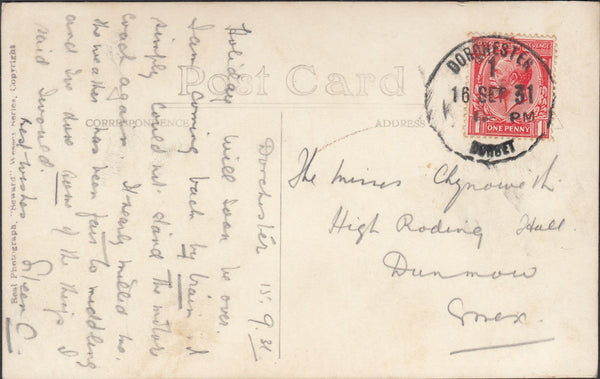 Post Card
CORRESPONDENCE
ADDRESS
Real Photograph, "Seward" Wessex Series, Copyright
Dorchester 15.9.31
Holiday will soon be over.
I am coming back by train. I
simply could not stand the motor
coach again. It nearly killed me.
the weather has been fair to middling
and I've done some of the things I
said I would.
best wishes
C.
The Misses Chynoweth
High Roding Hall
Dunmow
Essex.
DORCHESTER
1
16 SEP 31
PM
DORSET
ONE PENNY